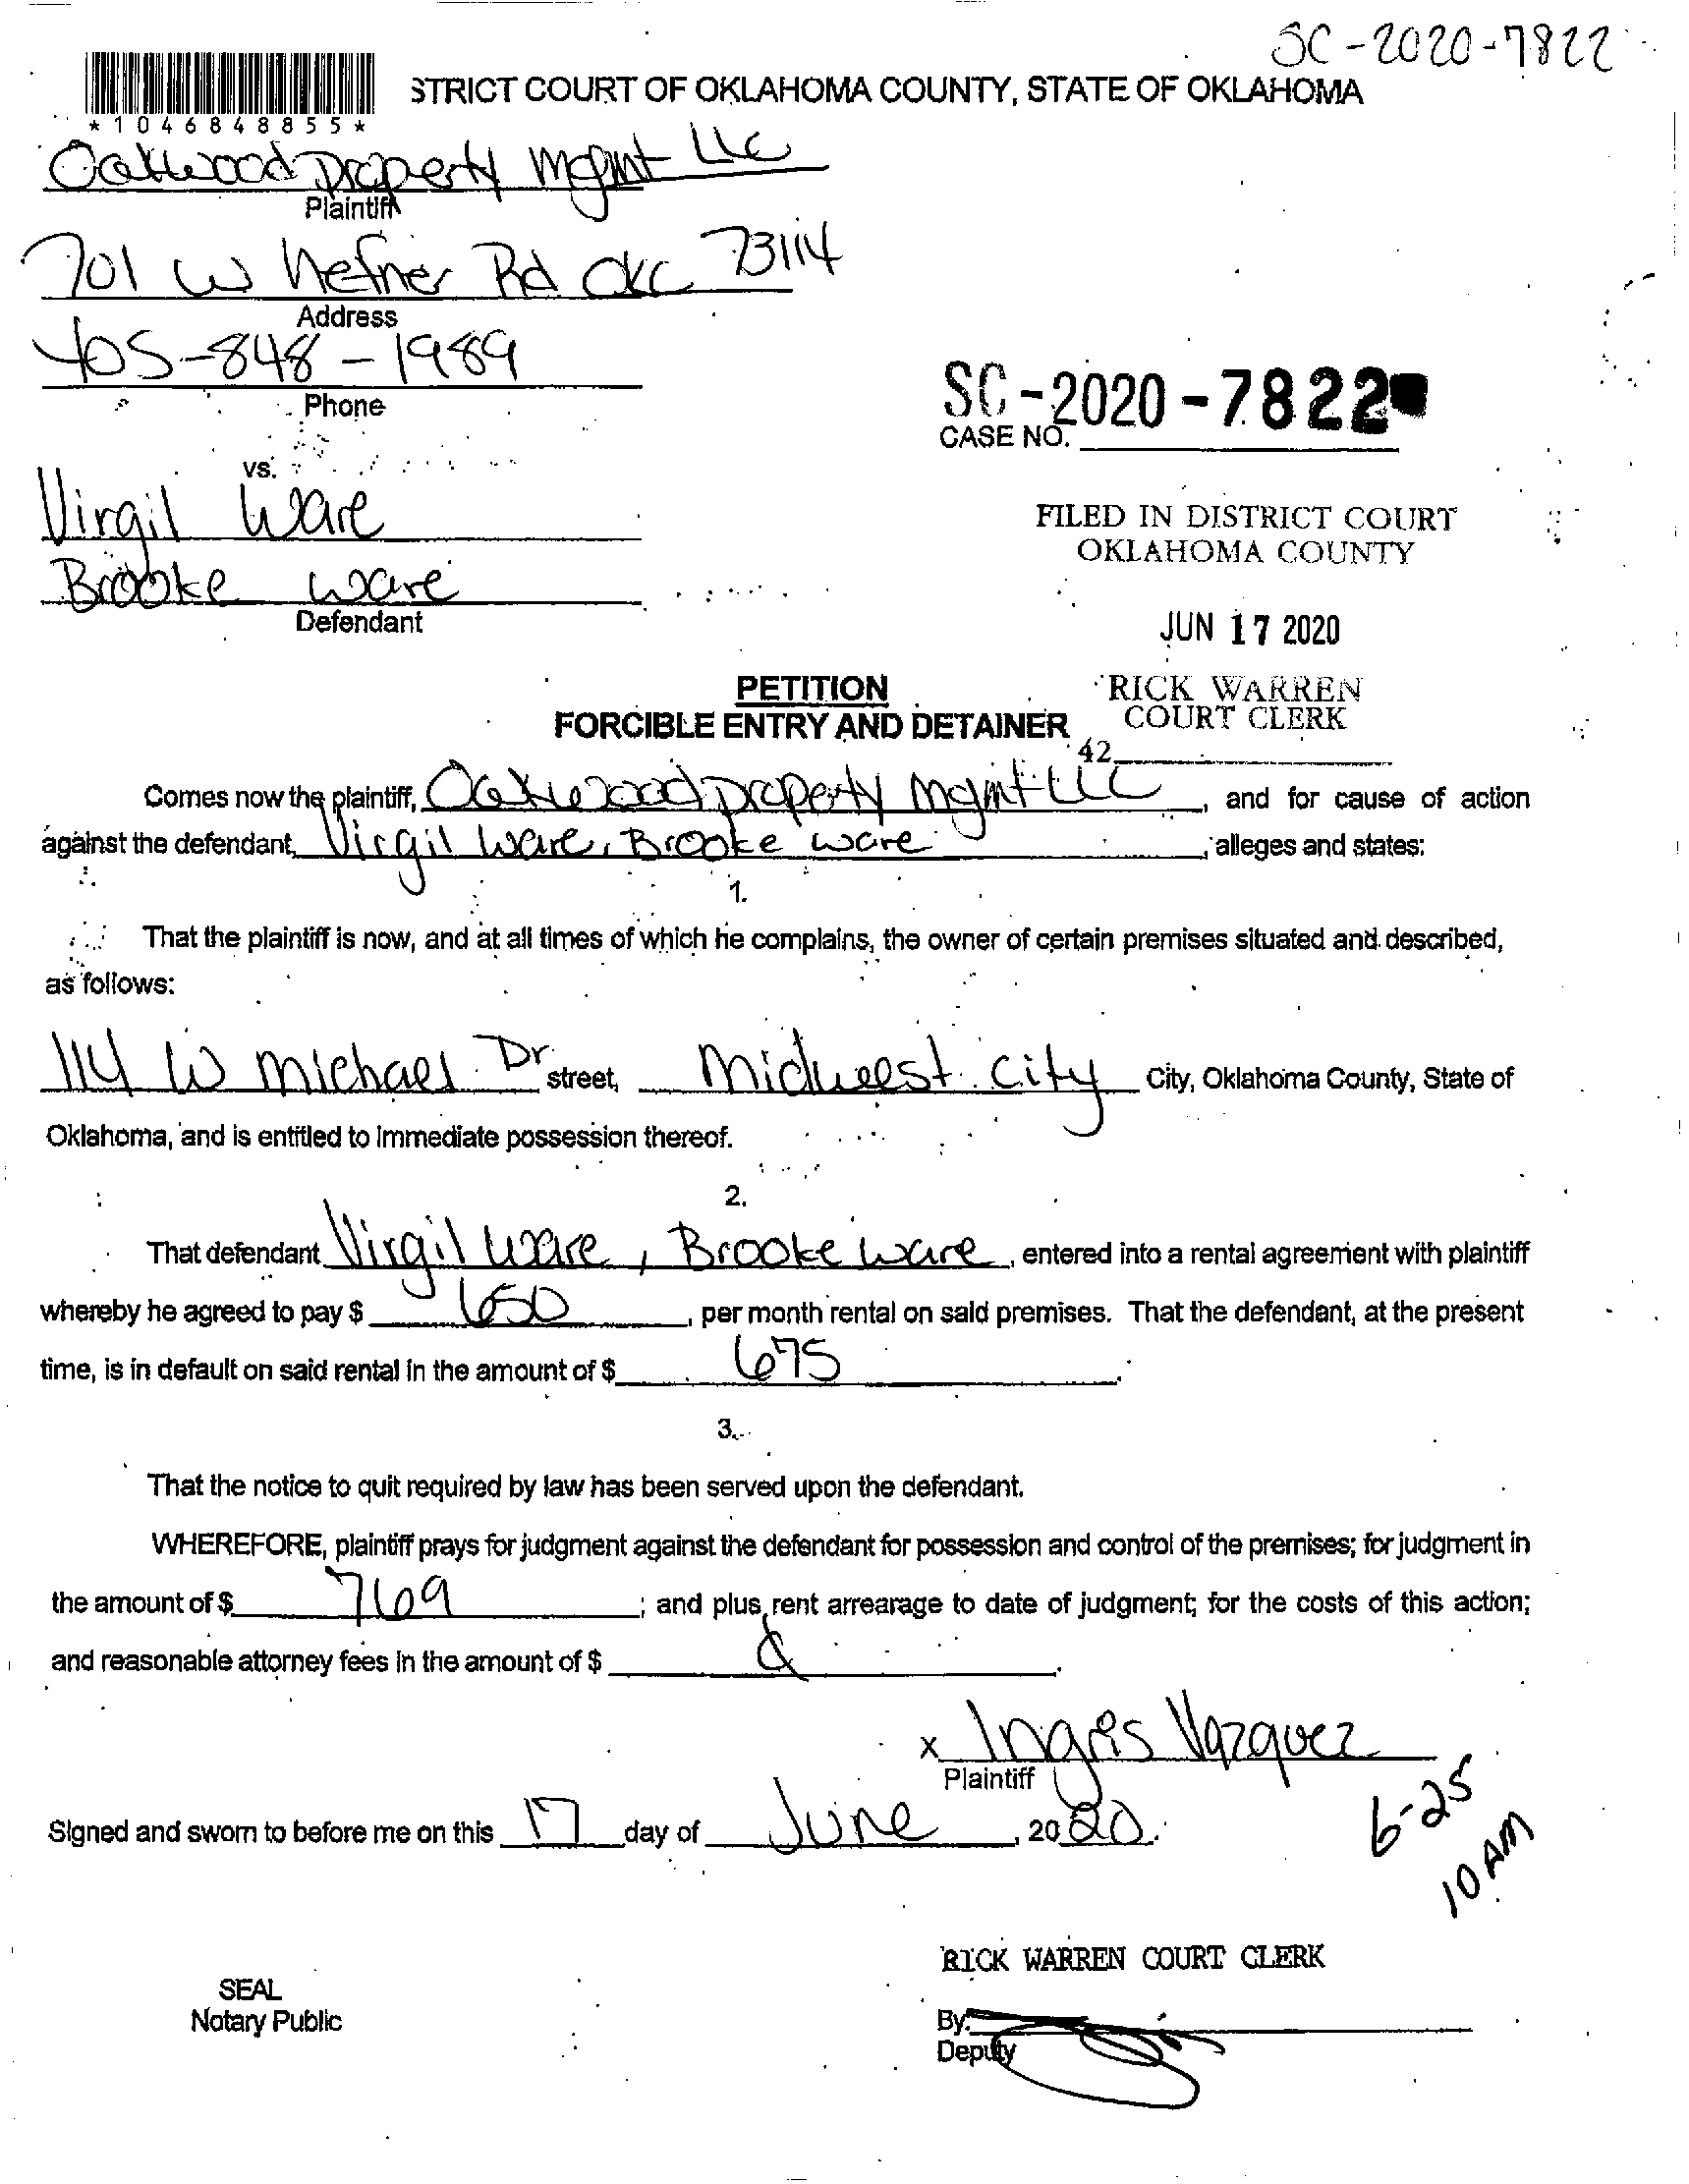 SC-2020-7822
STRICT COURT OF OKLAHOMA COUNTY, STATE OF OKLAHOMA
*1046848855*
Oakwood Property Mgmnt LLC
Plaintiff
701 W Hefner Rd OKC 73114
Address
405-848-1989
Phone
SC-2020-7822
CASE NO.
vs.
Virgil Ware
Brooke Ware
Defendant
FILED IN DISTRICT COURT
OKLAHOMA COUNTY
JUN 17 2020
RICK WARREN
COURT CLERK
42
PETITION
FORCIBLE ENTRY AND DETAINER
Comes now the plaintiff, Oakwood property Mgmt LLC, and for cause of action
against the defendant, Virgil Ware, Brooke Ware, alleges and states:
1.
That the plaintiff is now, and at all times of which he complains, the owner of certain premises situated and described,
as follows:
114 W Michael Dr street, Midwest city City, Oklahoma County, State of
Oklahoma, and is entitled to immediate possession thereof.
2.
That defendant Virgil Ware, Brooke Ware, entered into a rental agreement with plaintiff
whereby he agreed to pay $ 650, per month rental on said premises. That the defendant, at the present
time, is in default on said rental in the amount of $ 675.
3.
That the notice to quit required by law has been served upon the defendant.
WHEREFORE, plaintiff prays for judgment against the defendant for possession and control of the premises; for judgment in
the amount of $ 769; and plus rent arrearage to date of judgment; for the costs of this action;
and reasonable attorney fees in the amount of $
x Ingris Vazquez
Plaintiff
Signed and sworn to before me on this 17 day of June, 2020.
6-25
10 AM
RICK WARREN COURT CLERK
SEAL
Notary Public
By:
Deputy